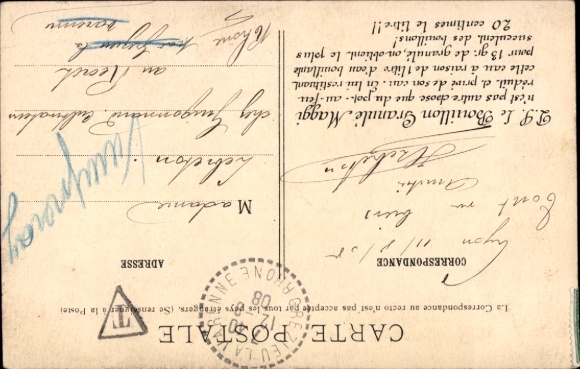 CARTE POSTALE
La Correspondance au recto n'est pas acceptée par tous les pays étrangers. (Se renseigner à la Poste)
CORRESPONDANCE
ADRESSE
T
GREZIEU-LA-VARENNE
RHONE
12
08
Lyon 11/8/08
Tout va bien
Amitié
Lebreton
P.S. Le Bouillon Granulé Maggi
n'est pas autre chose que du pot-au-feu
réduit et privé de son eau. En lui restituant
cette eau à raison de 1 litre d'eau bouillante
pour 13 gr. de granulé, on obtient le plus
succulent des bouillons!
20 centimes le litre!!
Madame
Lebreton
chez Guigonnand cultivateur
au Recret
Rhône
Vaugneray